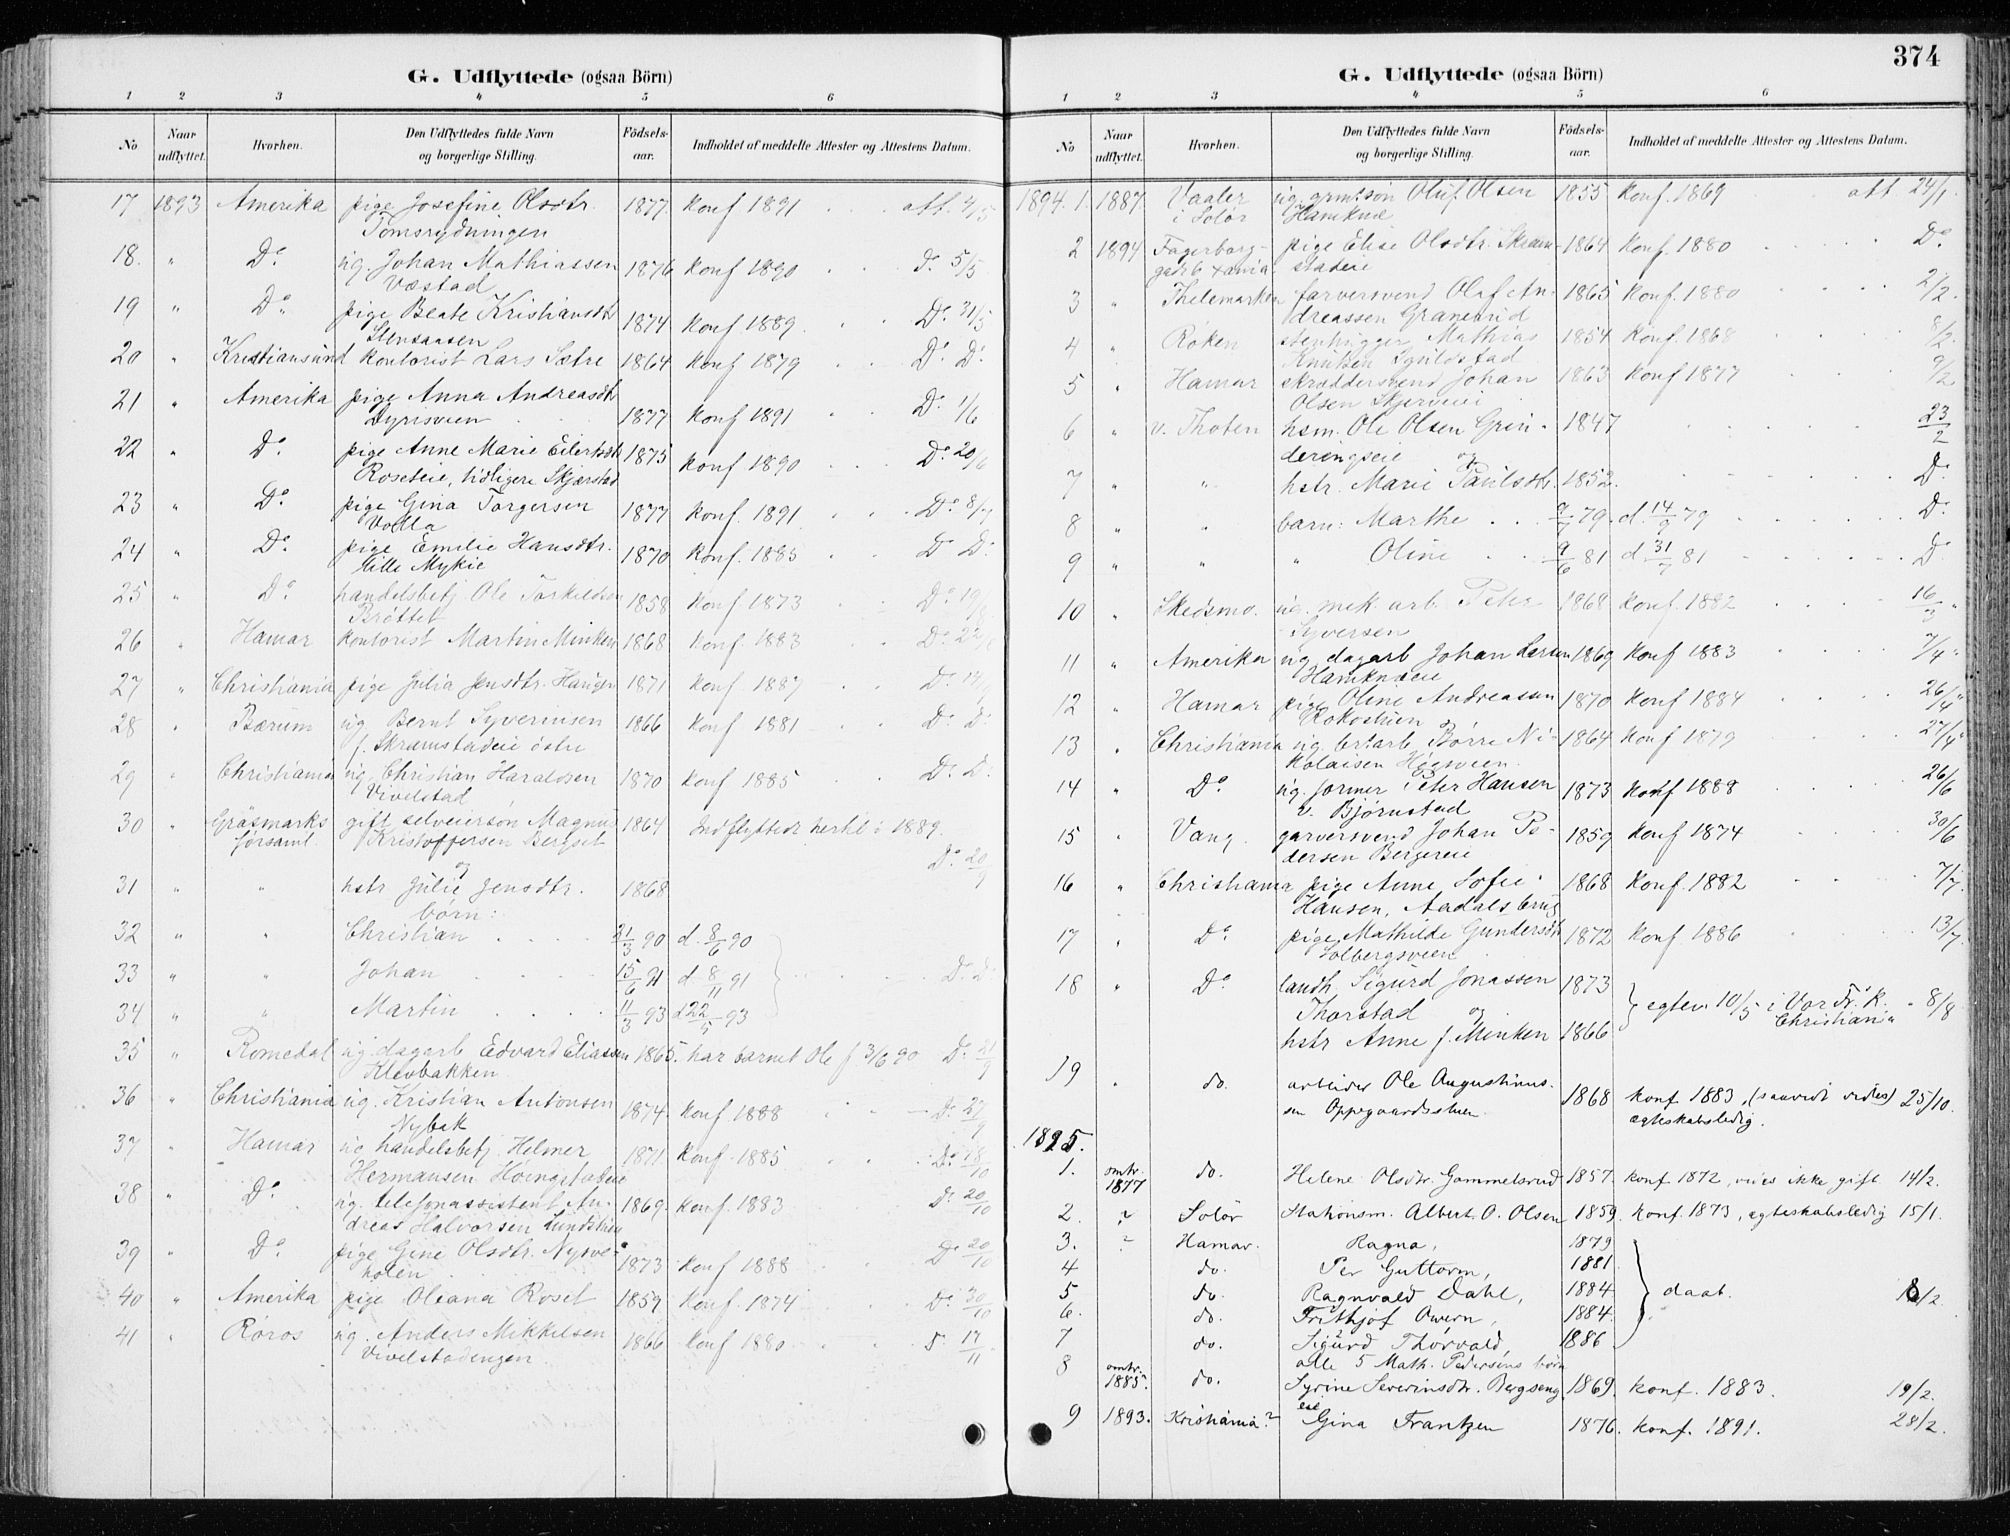 G. Udflyttede (ogsaa Börn)
1 2 3 4 5 6
No
Naar udflyttet.
Hvorhen.
Den Udflyttedes fulde Navn og borgerlige Stilling.
Födsels-aar.
Indholdet af meddelte Attester og Attestens Datum.
17 1893 Amerika pige Josefine Olsdtr. 1877 konf 1891 . . . att. 4/5
Tomsrydningen
18. " Do. ug. Johan Mathiassen 1876 konf 1890 . . . do. 5/5
Væstad
19 " Do. pige Beate Kristiansdtr 1874 konf 1889. . . Do. 31/5
Stensaasen
20 " Kristiansund kontorist Lars Sætre 1864 konf 1879 . . Do. Do.
21 " Amerika pige Anna Andreasdtr
Dyrisveen 1877 konf 1891 . . Do. 1/6
22 " Do. pige Anne Marie Eilertsdtr 1875 konf 1890 . . . Do. 20/6
Roseteie, tidligere Skjærstad
23 " Do. pige Gina Torgersen 1877 konf. 1891 . . . Do. 8/7
Volla
24 " Do. pige Emilie Hansdtr. 1870 konf. 1885 . . Do Do.
lille Mykie
25 " Do. handelsbetj Ole Torkildsen 1858 konf 1873 . . Do. 19/8
Brøttet
26 " Hamar kontorist Martin Minken 1868 konf. 1883 . . Do.
27 " Christiania pige Julia Jensdtr. Haugen 1871 konf. 1887 . . Do.
28 " Bærum ug Bernt Syverinsen 1866 konf 1881 . . Do Do.
f. Skramstadeie östre
29 " Christiania ug. Christian Haraldsen 1870 konf 1885 . . Do. Do.
Vivelstad
30 " Gräsmarks gift selveiersøn Magnus 1864 Indflyttede hertil i 1889.
församl. Kristoffersen Bergset Do 20/9
og
31 " " hstr Julie Jensdtr. 1868
børn:
32 " " Christian . . . . 21/3 90 d. 8/6 90
33 " " Johan . . . . 15/6 91 d 8/11 91 . . . Do. Do
34 " " Martin . . . . 11/3 93 d 22/5 93
35 " Romedal ug dagarb Edvard Eliassen 1865. har barnet Ole f 3/6 90 Do. 21/9
Klevbakken
36 " Christiania ug. Kristian Antonsen 1874. konf 1888 . . Do. 27/9
Nybak
37 " Hamar ug handelsbetj. Helmer 1871 konf. 1885 . . Do. 18/10
Hermansen Hoingstadeie
38 " Do. ug. telefonassistent An- 1869. konf. 1883 . . Do. 20/10
dreas Halvorsen Lundstuen
39 " Do. pige Gine Olsdtr. Nysve- 1873 konf 1888 . . Do 20/10
holen
40 " Amerika pige Oleana Roset 1859 konf. 1874 . . Do. 30/10
41 " Röros ug. Anders Mikkelsen 1866 konf 1880 . . D. 17/11
Vivelstadengen
374
G. Udflyttede (ogsaa Börn)
1 2 3 4 5 6
No
Naar udflyttet.
Hvorhen.
Den Udflyttedes fulde Navn og borgerlige Stilling.
Födsels-aar.
Indholdet af meddelte Attester og Attestens Datum.
1894. 1. 1887. Vaaler ug. grmtsøn Oluf Olsen 1855 konf. 1869 att 24/1.
i Solør Hamknæ
2 1894 Fagerborg- pige Elise Olsdtr. Skram- 1864 konf. 1880 . . . . Do.
gadb Xania. stadeie
3 " Thelemarken farversvend Olaf An- 1865 konf. 1880 . . . . 2/2.
dreassen Granerud
4 " Røken stenhugger Mathias 1854 konf. 1868 . 8/2.
Knutsen Sguldstad
5 " Hamar skræddersvend Johan 1863 konf 1877 . . 9/2
Olsen Skjerveeie
6 " v. Thoten hsm. Ole Olsen Grin- 1847 . . . . . 23/2
derengseie og
7 " " hstr. Marie Paulsdtr. 1852. . . . . Do.
8 " " barn: Marthe . . . 9/7 79. d. 14/9 79 . . . . Do.
9 " " " Oline . . 9/6 81 d 31/7 81 . . . . Do.
10 " Skedsmo. ug. mek. arb. Peter 1868 konf. 1882 . . . . 16/3 "
Syversen
11 " Amerika ug. dagarb Johan Larsen 1869 konf 1883 . . . . 7/4 "
Hamknæeie
12 " Hamar pige Oline Andreassen 1870 konf 1884 . . . . 26/4 "
Rokostuen
13 " Christiania ug. brtarb. Børre Ni- 1864 konf 1879 27/4 "
kolaisen Høgsveen.
14 " Do ug. former Peter Hansen 1873 konf 1888 . . . . 26/6
v. Bjørnstad
15 " Vang. garversvend Johan Pe- 1859 konf 1874 . . . . 30/6
dersen Bergereie
16 " Christiania pige Anne Sofie 1868 konf. 1882 . . . . 7/7.
Hansen, Aadalsbrug
17 " Do. pige Mathilde Gundersdtr 1872 konf 1886 . . 13/7.
Solbergsveen
18 " Do. landh. Sigurd Jonassen 1873
Thorstad og egtev. 10/5 i Vor Fr. K. " 8/8
Christiania
hstr Anne f. Minken 1866
19 " do. arbeider Ole Augustinus-
sen Oppegaardsstuen. 1868 konf. 1883, (saavidt vides) 25/10.
ægteskabsledig.
1895.
1. omtr. 1877 do. Helene Olsdtr. Gammelsrud 1857. konf 1872, vides ikke gift 14/2.
2. ? Solør Stationsm. Albert. O. Olsen 1859. konf. 1873, egteskabsledig 15/1.
3. ? Hamar. Ragna, 1879
4 do. Per Guttorm, 1881
5 do. Ragnvald Dahl, 1884 daab. 16/2
6. do. Frithjof Owern, 1884.
7 do. Sigurd Thorvald, 1886
alle 5 Math. Pedersens børn
8 omtr. 1885. do. Syrine Severinsdtr. Bergseng 1869. konf. 1883. 19/2.
eie
9 1893. Kristiania? Gina Frantzen 1876. konf. 1891. 28/2.